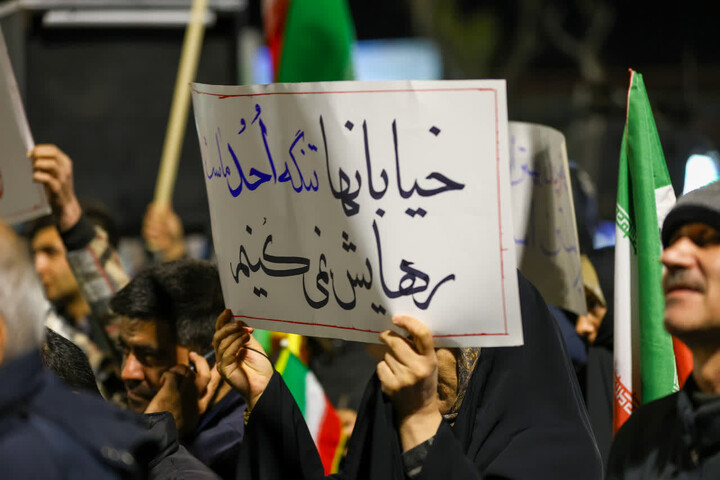 خیابانها تنگه اُحُد ماست
رهایش نمی کُنیم